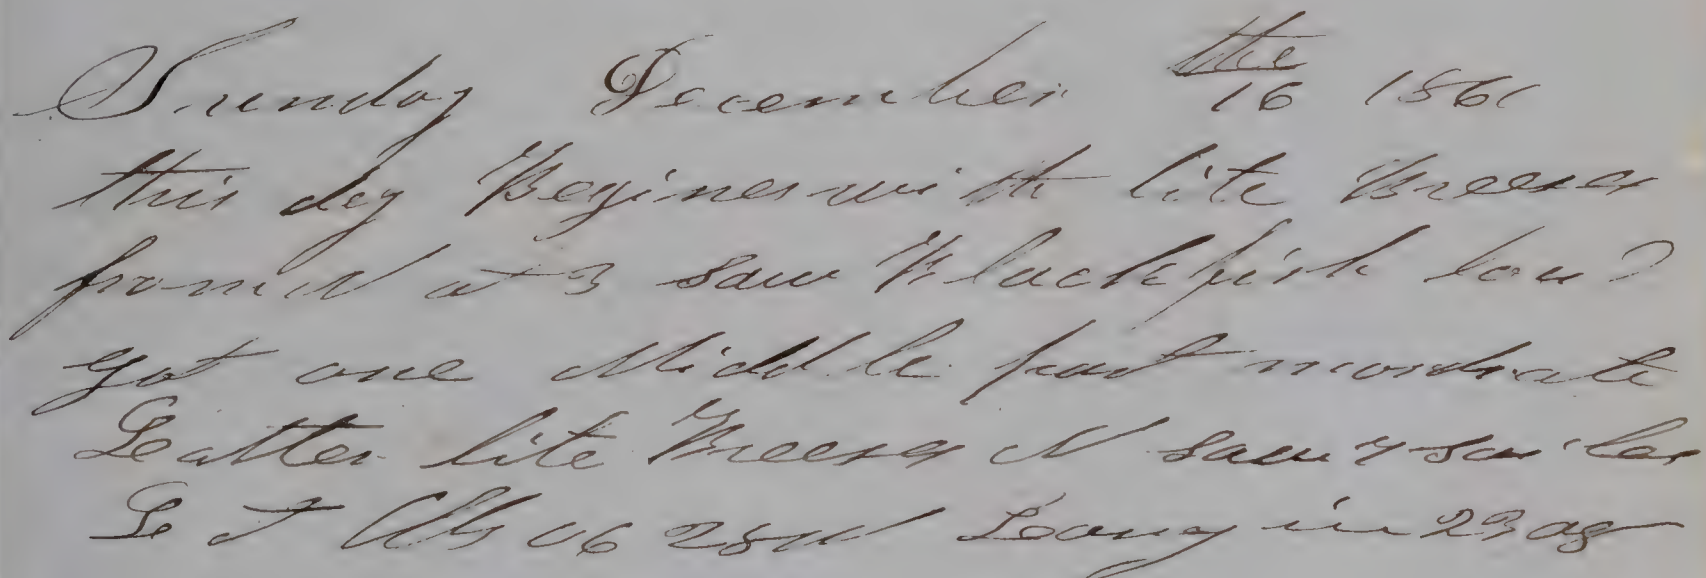 Sunday December the 16 1860
this dey Begines with lite Breeses
from N at 3 saw Blackfish
got one Middle part mordrate
Leatter lite Breeses N saw 4 sailes
L T 06 28 N Loung in 23 08